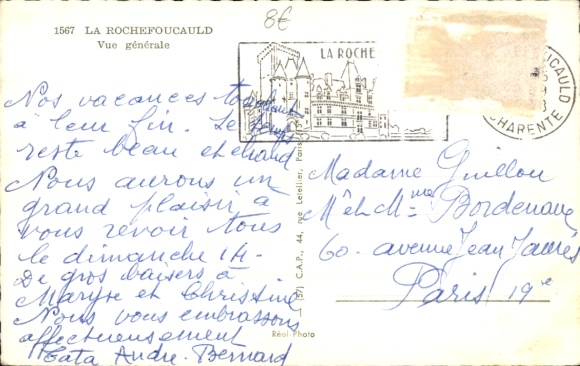 8€
1567 LA ROCHEFOUCAULD
Vue générale
LA ROCHE
UCAULD
CHARENTE
Nos vacances touchent
à leur fin. Le temps
reste beau et chaud
Nous aurons un
grand plaisir à
vous revoir tous
le dimanche 14.
De gros baisers à
Maryse et Christine
Nous vous embrassons
affectueusement
Tata André. Bernard
44, rue Letellier, Paris (15
(57) C.A.P.,
Réal-Photo
Madame Guillou
Mr et Mme Bordenave
60. avenue Jean Jaurès
Paris 19e